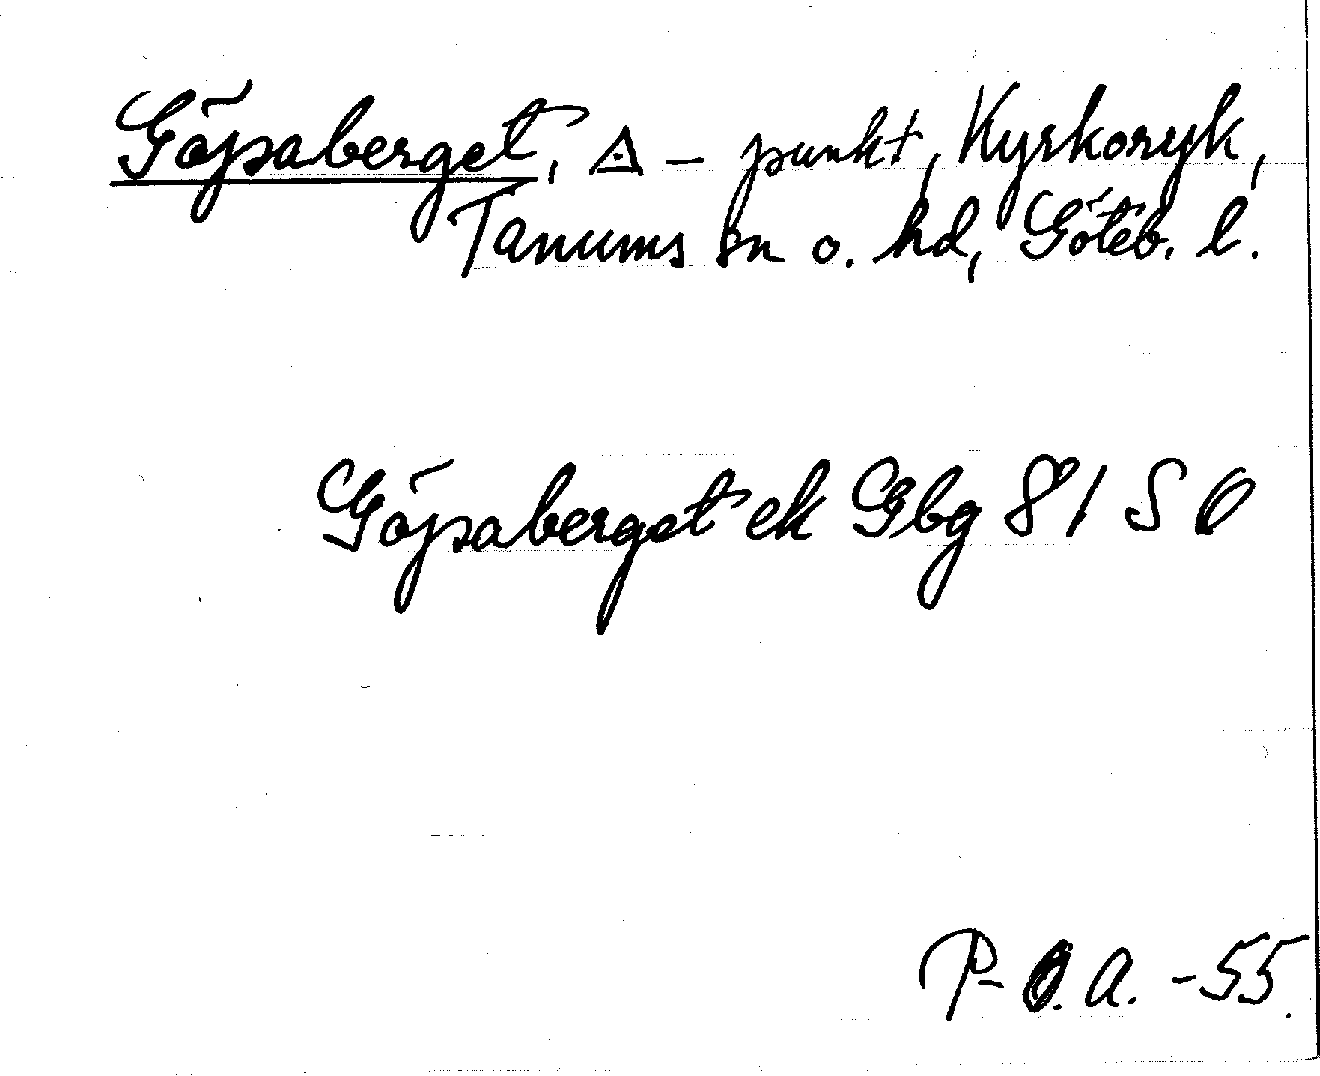 Göpsaberget, △ - punkt, Kyrkoryk,
Tanums sn o. hd, Göteb. l.
Göpsaberget ek Gbg 81 S O
P-O. A. -55.